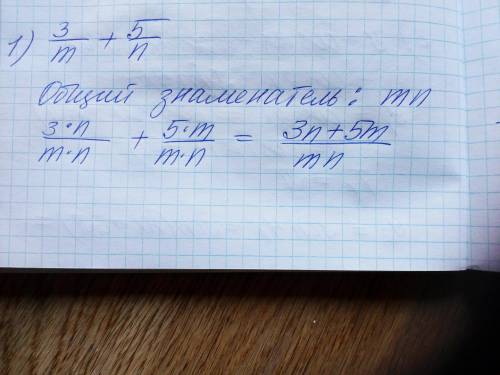 1) 3/m + 5/n
Общий знаменатель: mn
3·n/m·n + 5·m/m·n = 3n+5m/mn